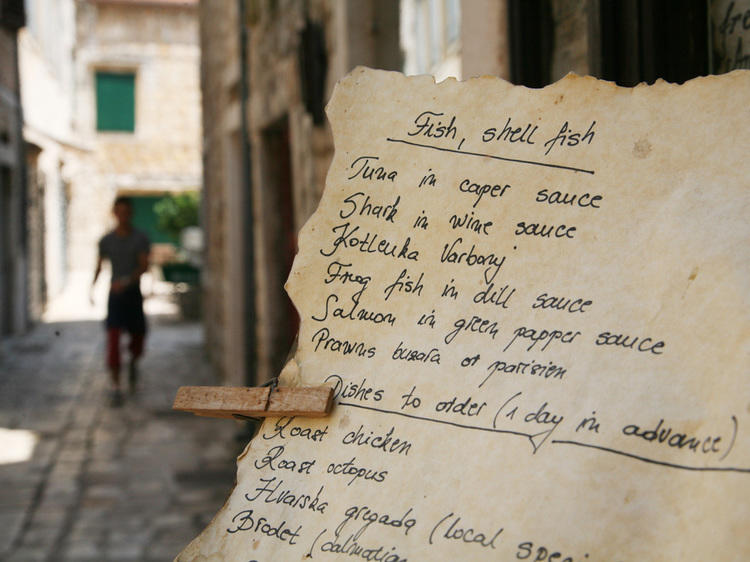 Fish, shell fish
Tuna in caper sauce
Shark in wine sauce
Kotlenka Varbonj
Frog fish in dill sauce
Salmon in green papper sauce
Prawns buzara or parisien
Dishes to order (1 day in advance)
Roast chicken
Roast octopus
Hvarska gregada (local speci
Brodet (dalmatian